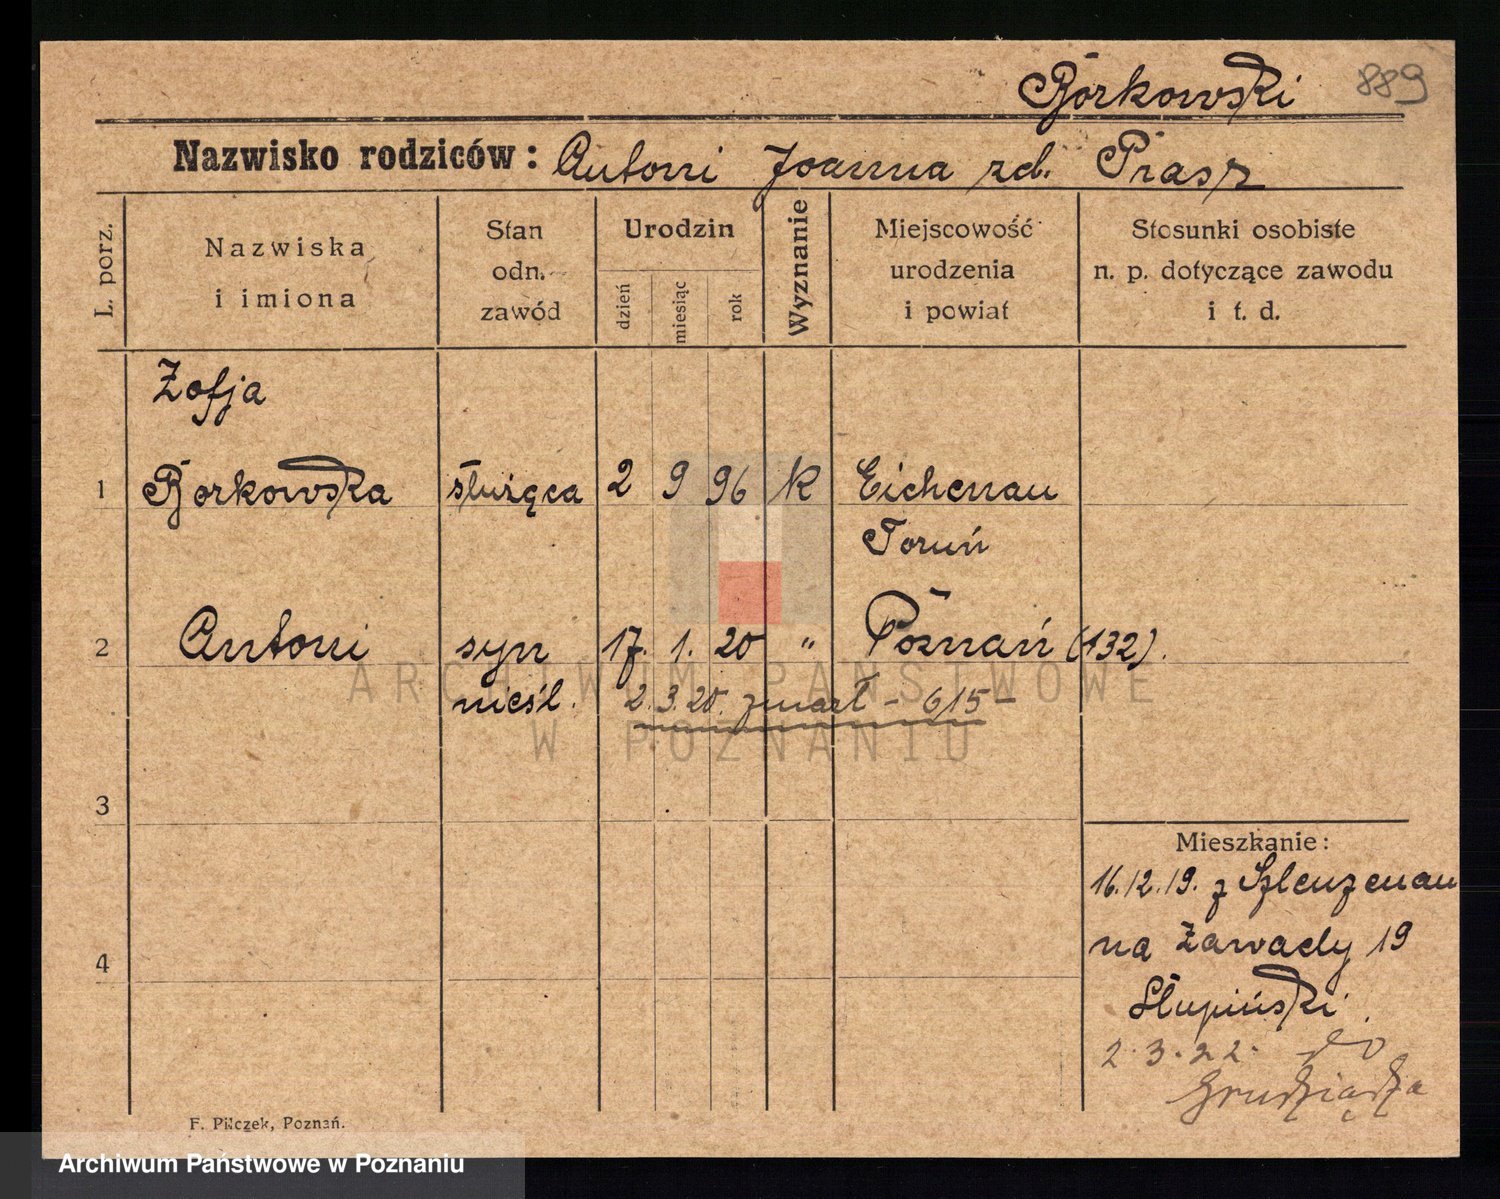 Borkowski 889
Nazwisko rodziców: Antoni Joanna zd. Prasz
L. porz.
Nazwiska
i imiona
Stan
odn.
zawód
Urodzin
dzień
miesiąc
rok
Wyznanie
Miejscowość
urodzenia
i powiat
Stosunki osobiste
n. p. dotyczące zawodu
i t. d.
Zofja
1 Borkowska służąca 2 9 96 K Eichenau
Toruń
2 Antoni syn 17. 1. 20 " Poznań (132).
nieśl. 2.3.20. zmarł - 615 -
3
4
Mieszkanie:
16.12.19. z Szlenzenau
na Zawady 19
Słupiński.
2.3.22. do
Grudziądza
F. Pilczek, Poznań.
ARCHIWUM PAŃSTWOWE
W POZNANIU
Archiwum Państwowe w Poznaniu